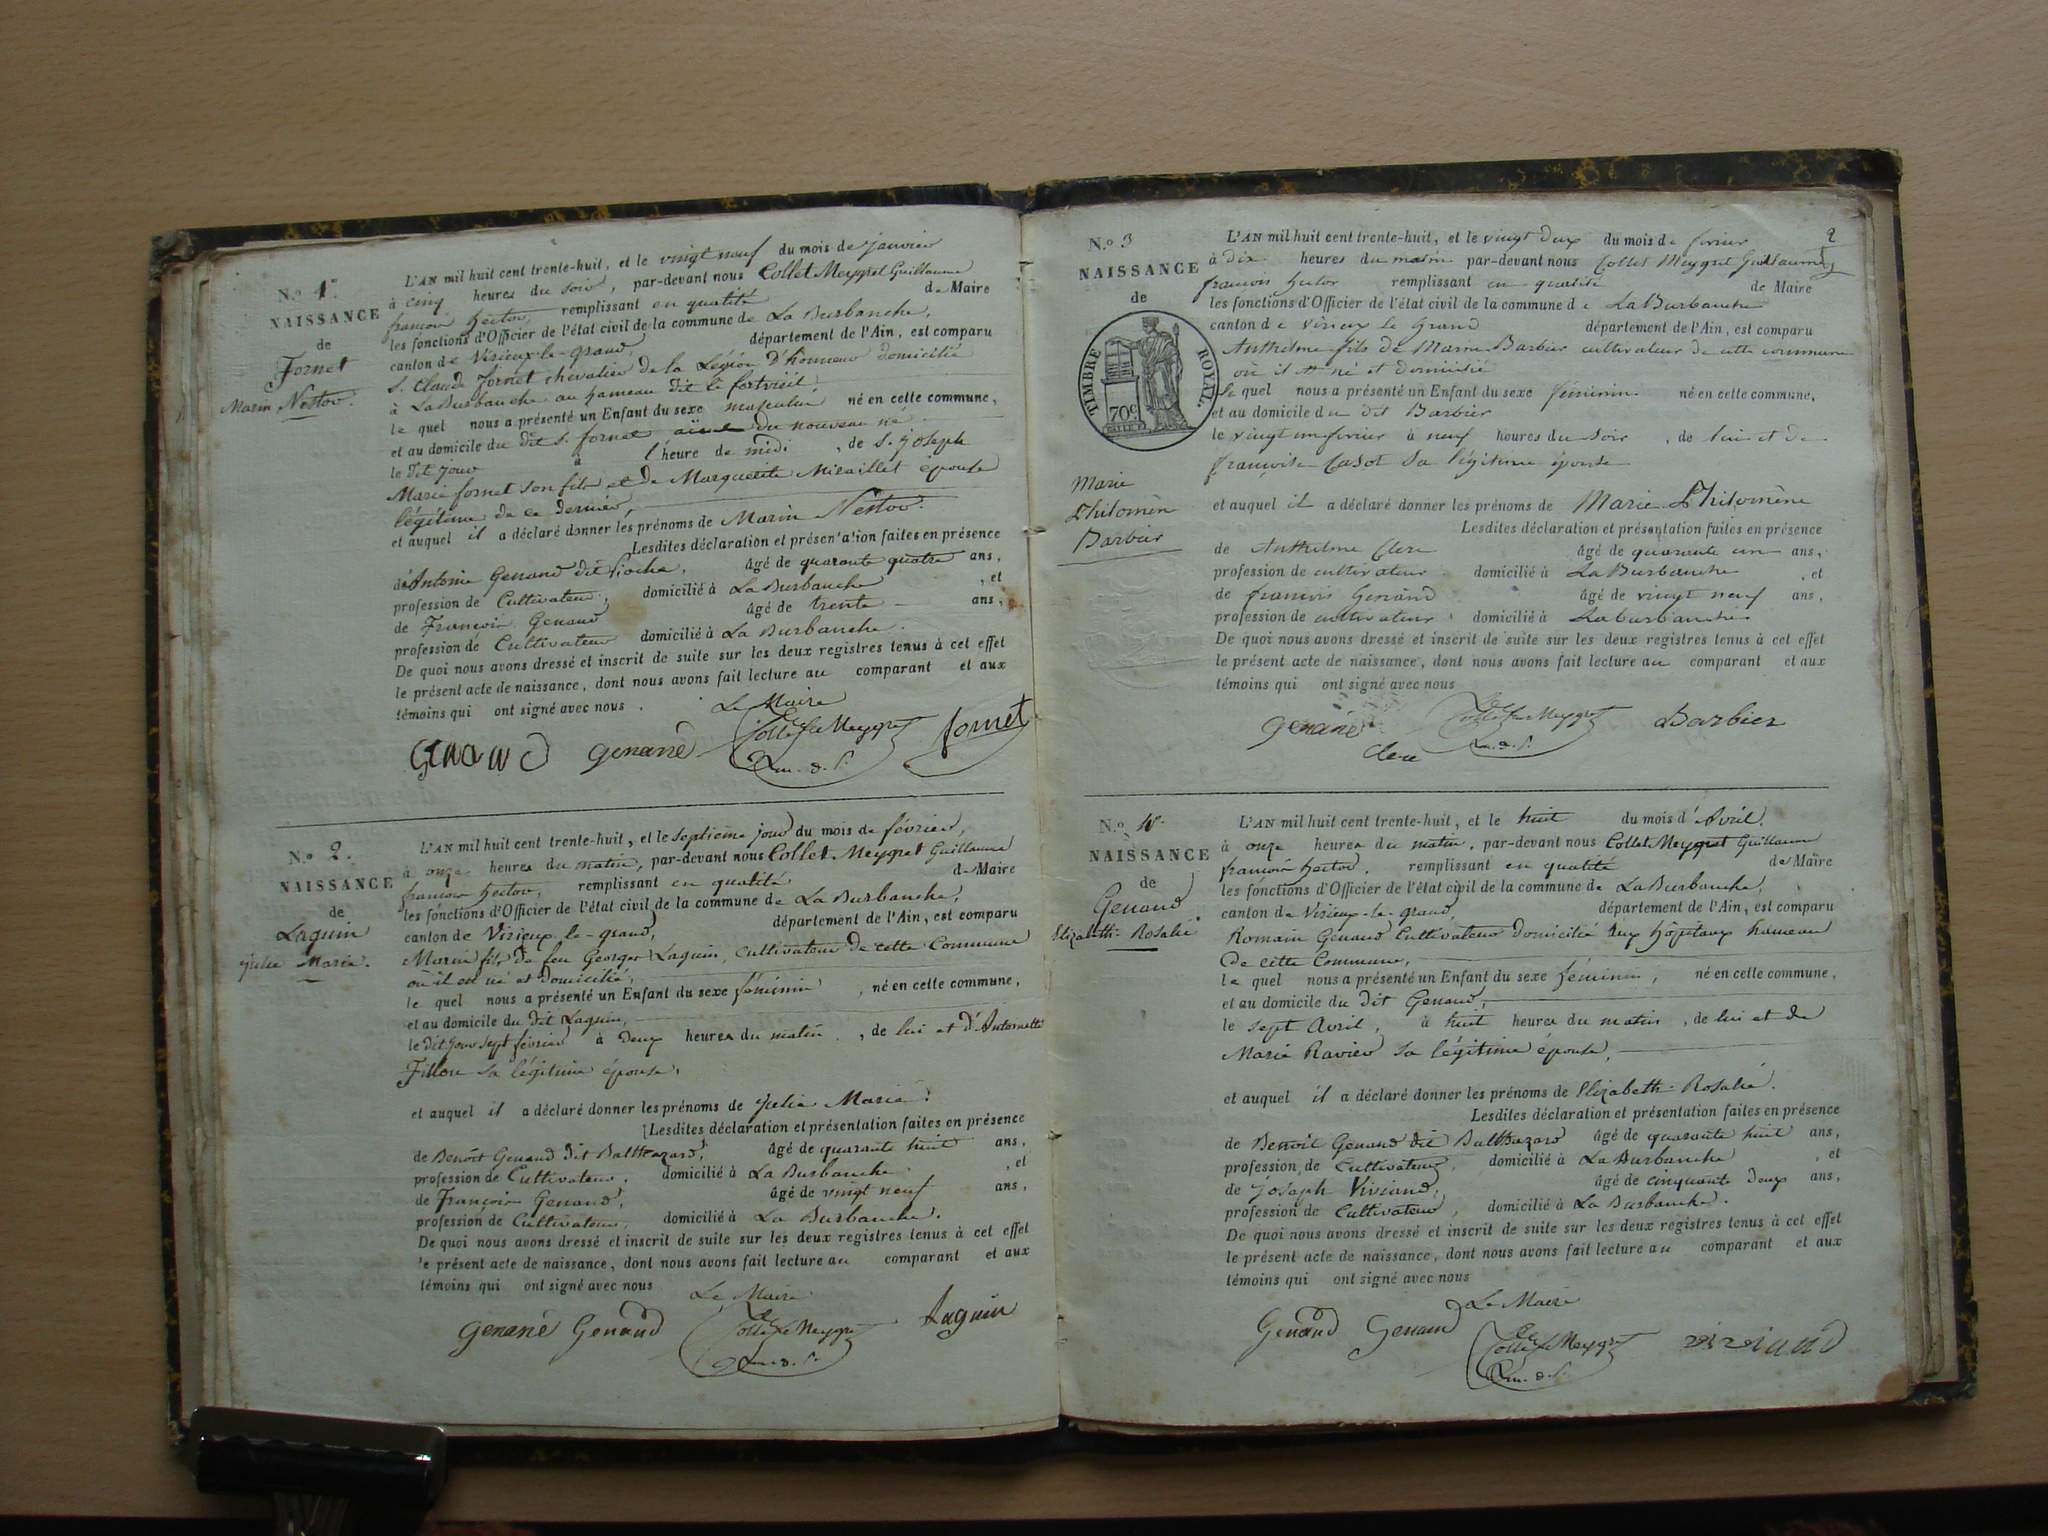 N.o 1er
NAISSANCE
de
Fornet
Marin Nestor.
L'AN mil huit cent trente-huit, et le vingt neuf du mois de janvier
à cinq heures du soir, par-devant nous Collet Meygret Guillaume
françois hector, remplissant en qualité de Maire
les fonctions d'Officier de l'état civil de la commune de La Burbanche,
canton de Virieux-le-grand, département de l'Ain, est comparu
S. Claude fornet chevalier de la Légion D'honneur domicilié
à La Burbanche au hameau dit le
le quel nous a présenté un Enfant du sexe masculin né en cette commune,
et au domicile du dit S. fornet aïeul du nouveau né
le dit jour à l'heure de midi, de S. joseph
Marie fornet son fils et de Marguerite Miraillet épouse
légitime de ce dernier,
et auquel il a déclaré donner les prénoms de Marin Nestor.
Lesdites déclaration et présentation faites en présence
de Antoine Genaud dit Pioche, âgé de quarante quatre ans,
profession de Cultivateur, domicilié à La Burbanche, et
de François Genaud âgé de trente ans,
profession de Cultivateur domicilié à La Burbanche.
De quoi nous avons dressé et inscrit de suite sur les deux registres tenus à cet effet
le présent acte de naissance, dont nous avons fait lecture au comparant et aux
témoins qui ont signé avec nous.
Le Maire
Genand genand Collet Meygret fornet
N.o 2.
NAISSANCE
de
Laguin
julie Marie.
L'AN mil huit cent trente-huit, et le septième jour du mois de février,
à onze heures du matin, par-devant nous Collet Meygret Guillaume
françois hector, remplissant en qualité de Maire
les fonctions d'Officier de l'état civil de la commune de La Burbanche,
canton de Virieux-le-grand, département de l'Ain, est comparu
Marin fils de feu Georges Laguin, cultivateur de cette Commune
où il est né et domicilié,
le quel nous a présenté un Enfant du sexe féminin, né en cette commune,
et au domicile du dit Laguin,
le dit jour sept février à deux heures du matin, de lui et d'Antoinette
Fillon sa légitime épouse,
et auquel il a déclaré donner les prénoms de julie Marie.
Lesdites déclaration et présentation faites en présence
de Benoît Genaud dit Balthazard, âgé de quarante huit ans,
profession de Cultivateur, domicilié à La Burbanche, et
de François Genaud, âgé de vingt neuf ans,
profession de Cultivateur, domicilié à La Burbanche.
De quoi nous avons dressé et inscrit de suite sur les deux registres tenus à cet effet
le présent acte de naissance, dont nous avons fait lecture au comparant et aux
témoins qui ont signé avec nous
Le Maire
genand Genaud Collet Meygret Laguin
2
N.o 3
NAISSANCE
de
TIMBRE ROYAL.
70c
Marie
Philomèn
Barbier
L'AN mil huit cent trente-huit, et le vingt deux du mois de fevrier
à dix heures du matin par-devant nous Collet Meygret Guillaume
francois hector remplissant en qualité de Maire
les fonctions d'Officier de l'état civil de la commune de La Burbanche
canton de virieux le Grand département de l'Ain, est comparu
Anthelme fils de Marin Barbier cultivateur de cette commune
où il est né et domicilié
le quel nous a présenté un Enfant du sexe féminin né en cette commune,
et au domicile du dit Barbier
le vingt un fevrier à neuf heures du soir, de lui et de
françoise Casot sa légitime épouse
et auquel il a déclaré donner les prénoms de Marie Philomène
Lesdites déclaration et présentation faites en présence
de Anthelme Clerc âgé de quarante un ans,
profession de cultivateur domicilié à La Burbanche, et
de francois Genand âgé de vingt neuf ans,
profession de cultivateur domicilié à Laburbanche
De quoi nous avons dressé et inscrit de suite sur les deux registres tenus à cet effet
le présent acte de naissance, dont nous avons fait lecture au comparant et aux
témoins qui ont signé avec nous
genand Collet Meygret Barbier
Clerc
N.o 4e.
NAISSANCE
de
Genaud
Elizabeth-Rosalie
L'AN mil huit cent trente-huit, et le huit du mois d'Avril.
à onze heures du matin, par-devant nous Collet Meygret Guillaume
françois hector, remplissant en qualité de Maire
les fonctions d'Officier de l'état civil de la commune de La Burbanche,
canton de Virieux-le-grand, département de l'Ain, est comparu
Romain Genaud Cultivateur domicilié aux hôpitaux hameau
de cette Commune,
le quel nous a présenté un Enfant du sexe féminin, né en cette commune,
et au domicile du dit Genaud,
le sept Avril, à huit heures du matin, de lui et de
Marie Ravier sa légitime épouse,
et auquel il a déclaré donner les prénoms de Elizabeth-Rosalie.
Lesdites déclaration et présentation faites en présence
de Benoît Genaud dit Balthazard âgé de quarante huit ans,
profession de Cultivateur, domicilié à La Burbanche, et
de joseph Viviand, âgé de cinquante deux ans,
profession de Cultivateur, domicilié à La Burbanche.
De quoi nous avons dressé et inscrit de suite sur les deux registres tenus à cet effet
le présent acte de naissance, dont nous avons fait lecture au comparant et aux
témoins qui ont signé avec nous
Le Maire
Genaud Genaud Collet Meygret viviand